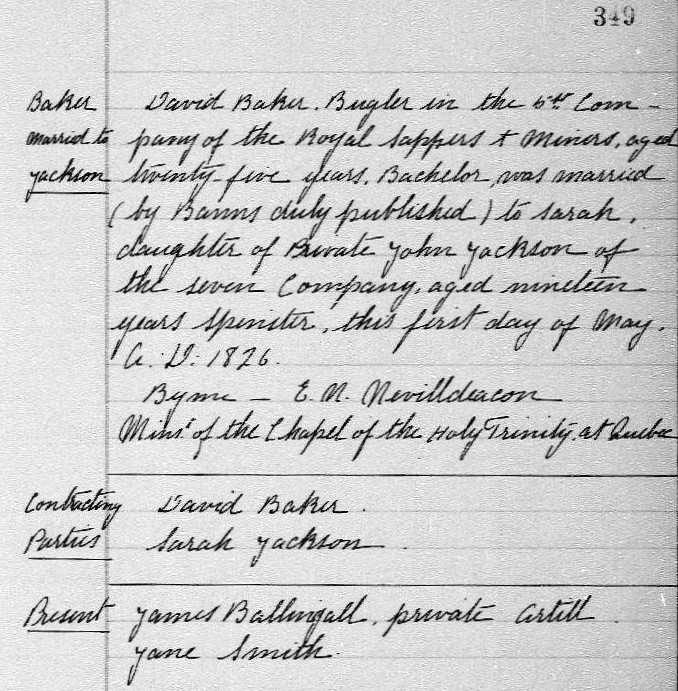 349
Baker
married to
Jackson
David Baker. Bugler in the 5th Com-
pany of the Royal Sappers & Miners, aged
twenty-five years, Bachelor, was married
(by Banns duly published) to Sarah,
daughter of Private John Jackson of
the seven Company, aged nineteen
years Spinster, this first day of May.
A. D. 1826.
By me - E. N. Nevilldeacon
Minr. of the Chapel of the Holy Trinity, at Quebec
Contracting
Parties
David Baker.
Sarah Jackson.
Present
James Ballingall, private Artill.
Jane Smith.